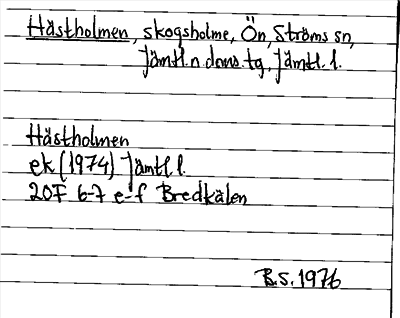 Hästholmen, skogsholme, Ön, Ströms sn,
Jämtl. n. doms. tg, Jämtl. l.
Hästholmen
ek (1974) Jämtl l.
20F 6-7 e-f Bredkälen
B.S. 1976